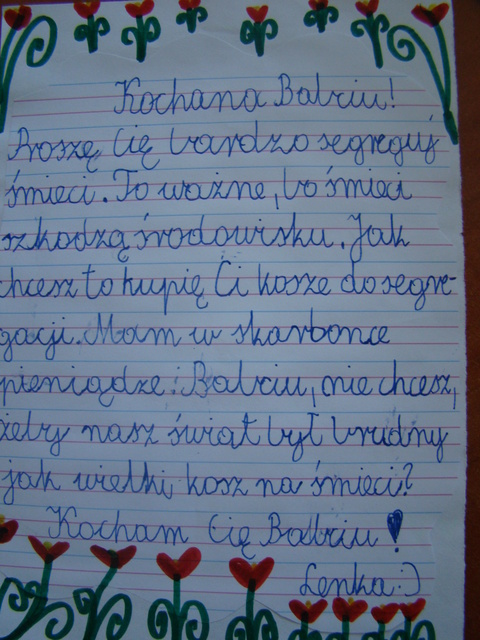 Kochana Babciu!
Proszę Cię bardzo segreguj
śmieci. To ważne, bo śmieci
szkodzą środowisku. Jak
chcesz to kupię Ci kosze do segre-
gacji. Mam w skarbonce
pieniądze. Babciu, nie chcesz,
żeby nasz świat był brudny
jak wielki kosz na śmieci?
Kocham Cię Babciu!
Lenka:)